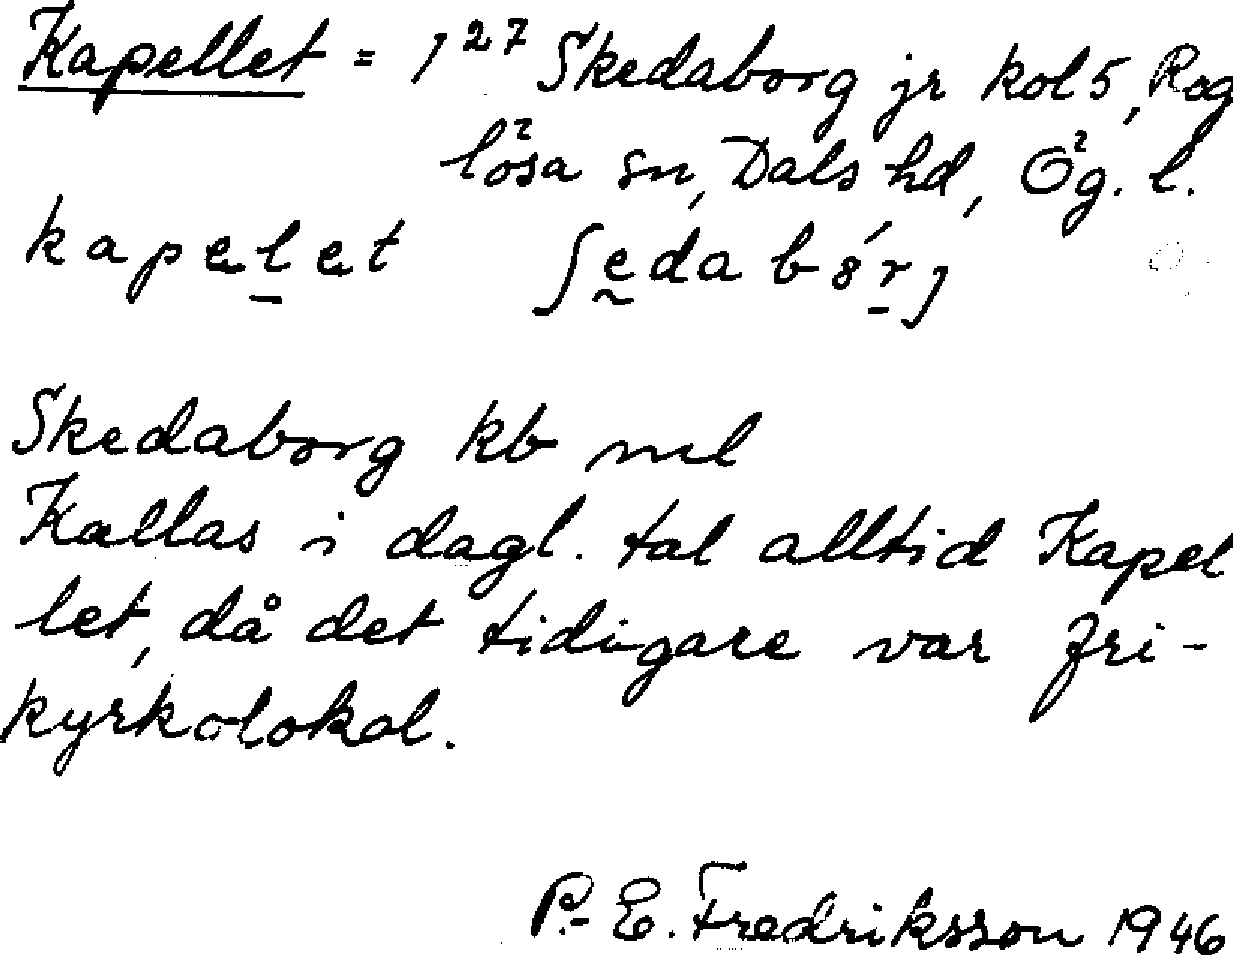 Kapellet = 1²⁷ Skedaborg jr kol 5, Rog
lösa sn, Dals hd, Ög. l.
kapelet ʃedabórj
Skedaborg kb ml
Kallas i dagl. tal alltid Kapel
let, då det tidigare var fri-
kyrkolokal.
P.-E. Fredriksson 1946